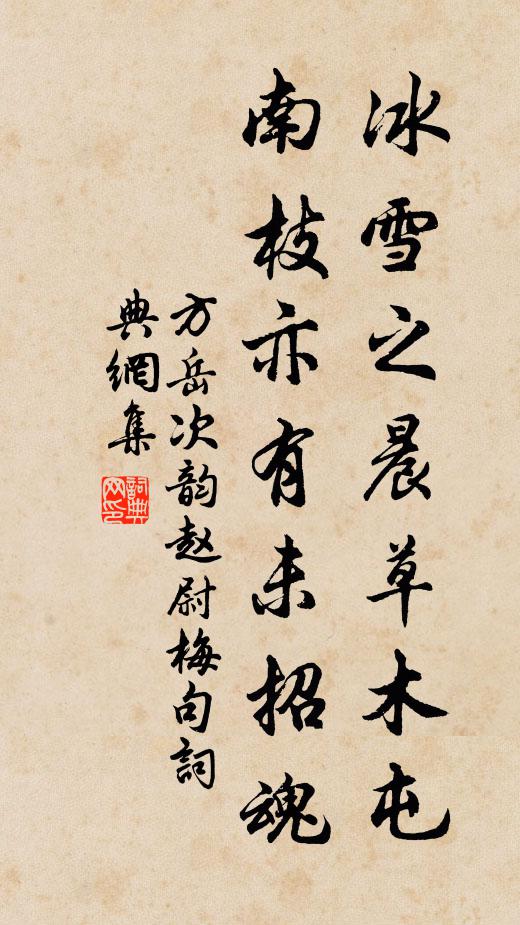 冰雪之晨草木屯
南枝亦有未招魂
方岳次韵赵尉梅句詞
典網集
詞典网印